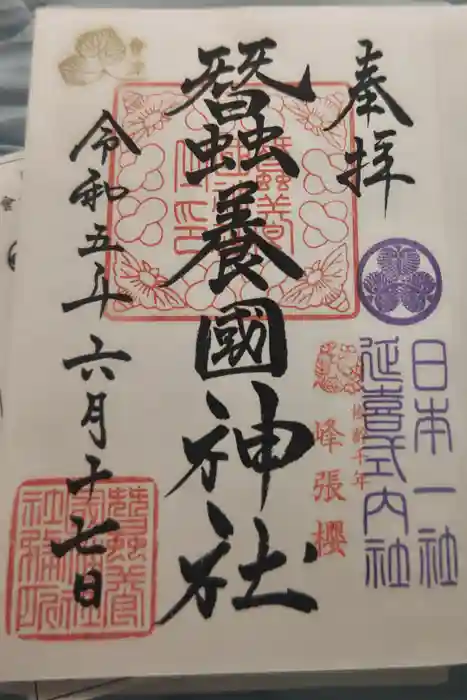 奉拝
日本一社
延喜式内社
樹齢千年
峰張櫻
蠶養國神社
令和五年六月十七日
会津